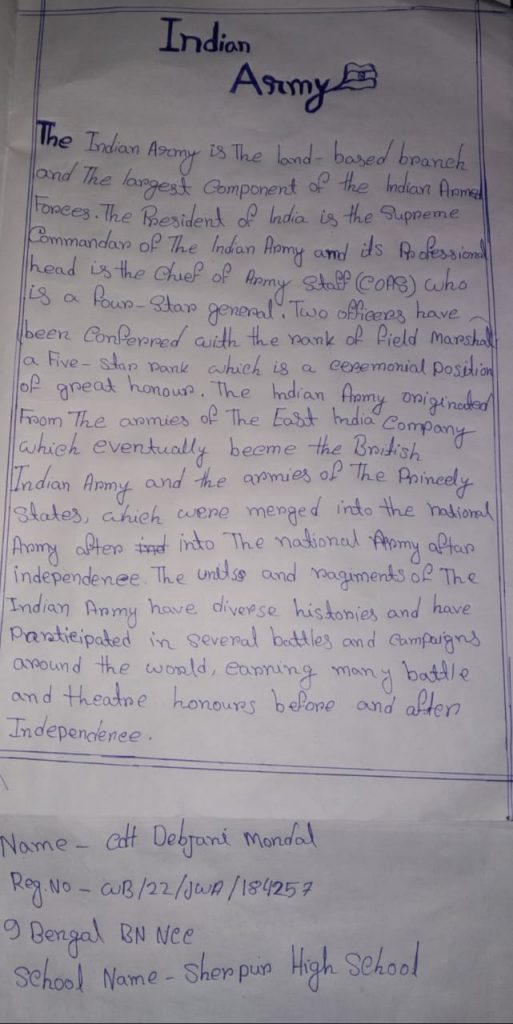 Indian
Army
The Indian Army is The land-based branch
and The largest Component of the Indian Armed
Forces. The President of India is the Supreme
Commandar of The Indian Army and its Professional
head is the Chief of Army Staff (COAS) who
is a four-Star general. Two officers have
been Conferred with the rank of field Marshal
a Five-star rank which is a ceremonial position
of great honour. The Indian Army originated
From The armies of The East India Company
which eventually beeme the British
Indian Army and the armies of The Princely
States, which were merged into the national
Army after ind into The national Army aftar
independence. The unitse and ragiments of The
Indian Army have diverse histories and have
Participated in several battles and Campaigns
around the world, earning many battle
and theatre honours before and after
Independence.
Name - Cdt Debjani Mondal
Reg.No - WB/22/JWA/184257
9 Bengal BN NCC
School Name - Sherpur High School